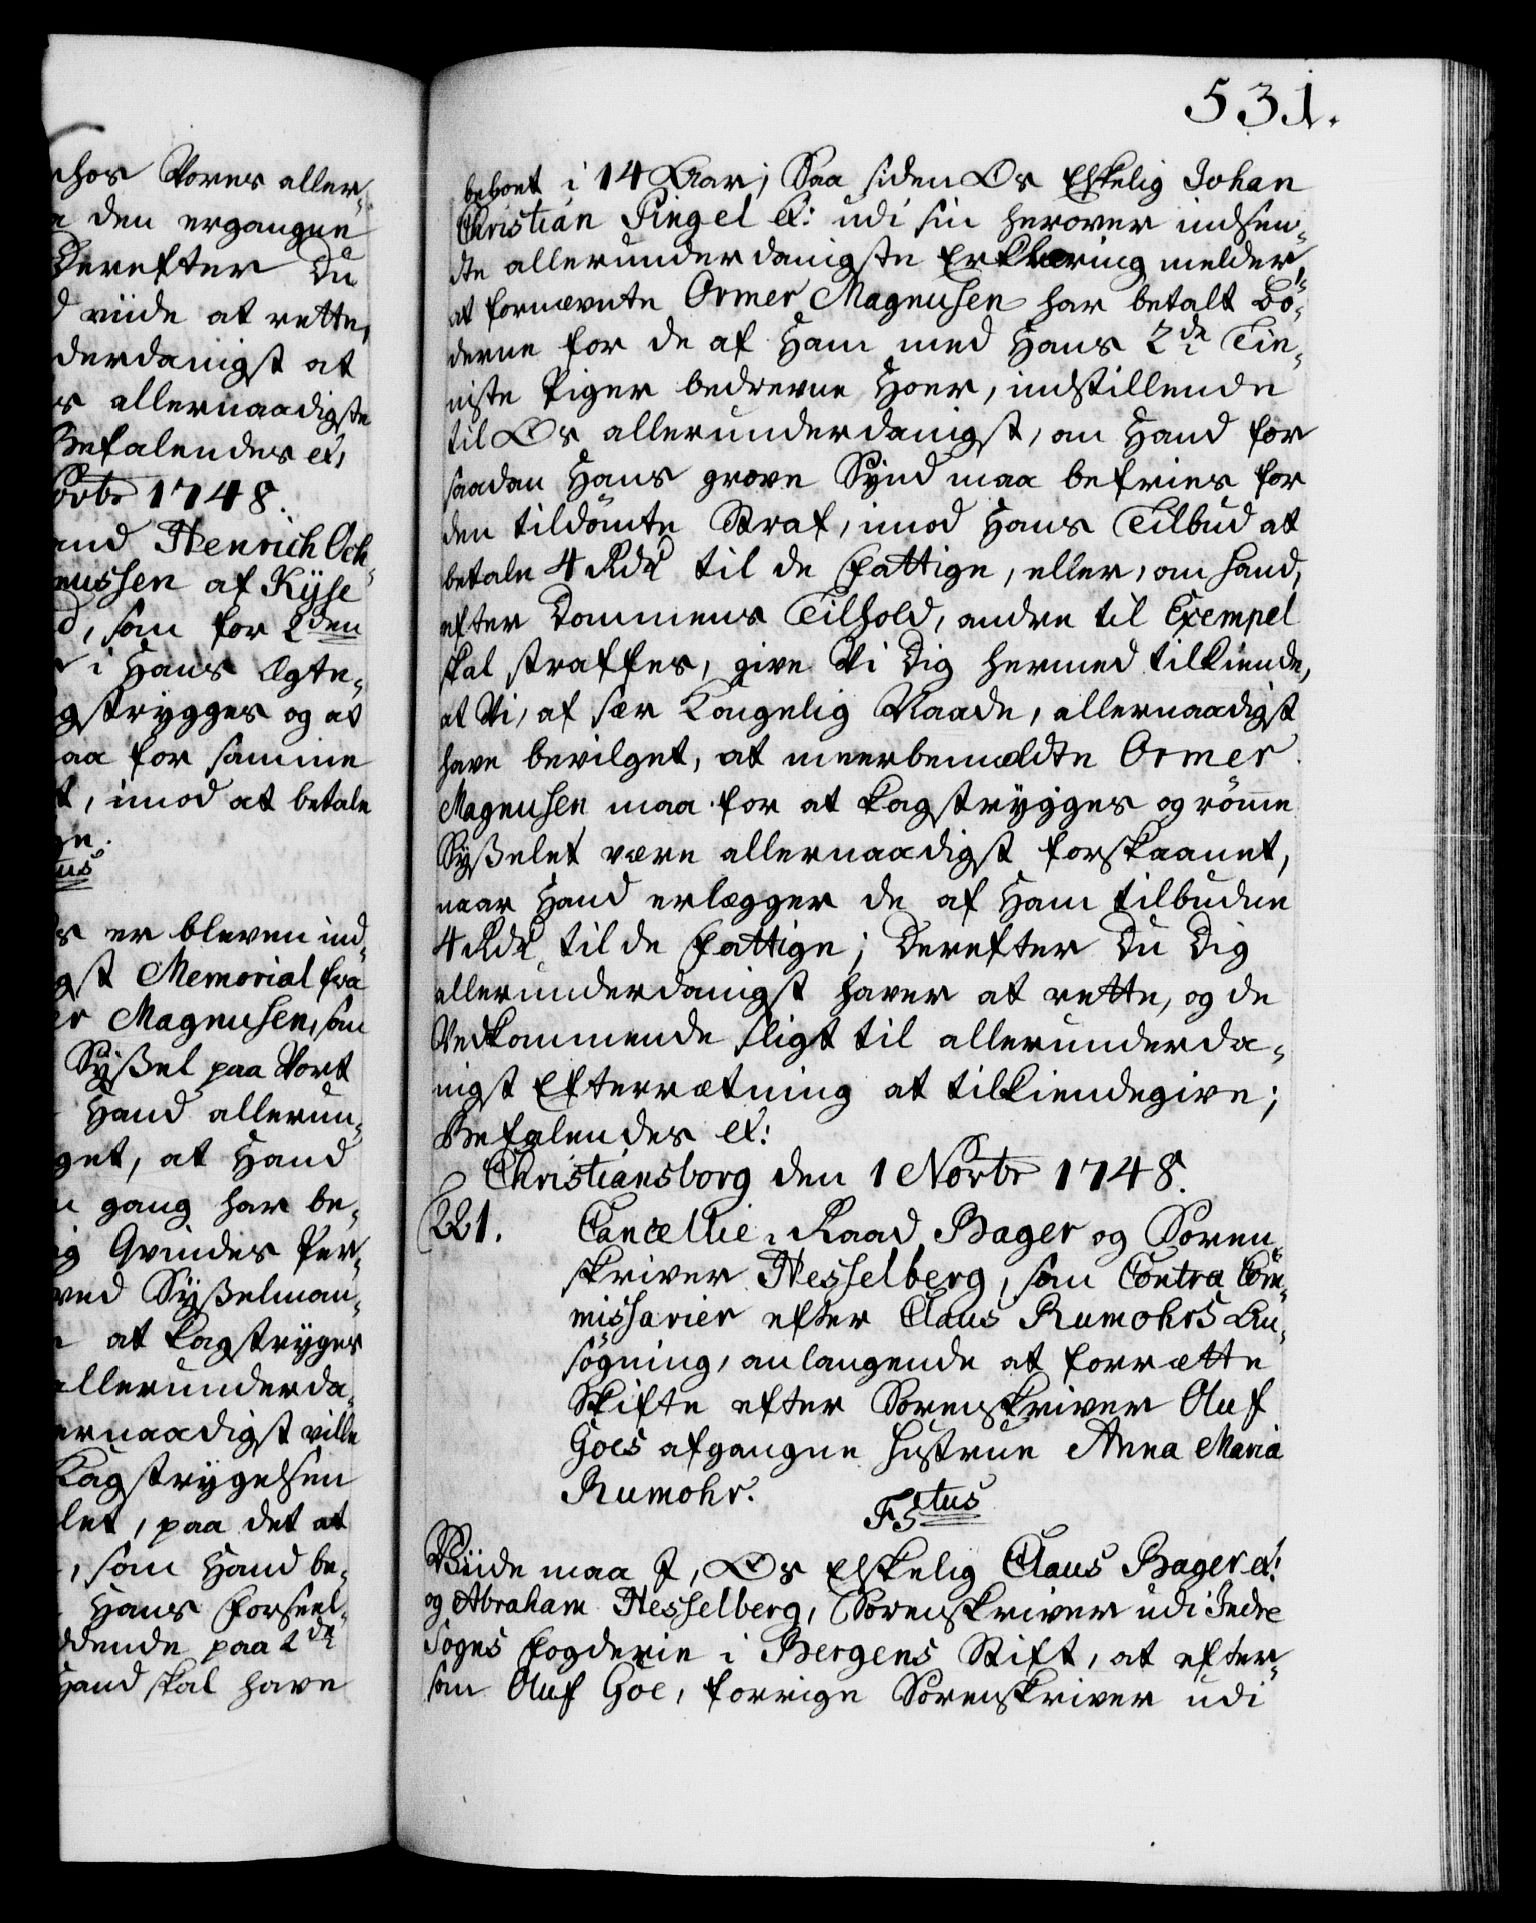 hos Vores aller-
den ergangne
Derefter Du
viide at rette,
derdanigst at
allernaadigste
Befalendes &c,
Novbr 1748.
and Henrich Och-
mussen af Kÿse
, som for 2den
i Hans Ægte-
gstrygges og at
aa for samme
t, imod at betale
er bleven ind-
gst Memorial fra
er Magnusen, som
Sÿßel paa Vort
Hand allerun-
get, at Hand
gang har be-
ig Qvindes Per-
ved Sÿßelman-
at kagstrÿges
allerunderda-
ernaadigst ville
Kagstrÿgelsen
let, paa det at
, som Hand be-
Hans Forseel-
dende paa 2de
Hand skal have
531.
beboet i 14 Aar; Saa siden Os Elskelig Johan
Christian Pingel &c: udi sin herover indsen-
dte allerunderdanigste Erklæring melder,
at fornævnte Ormer Magnusen har betalt Bö-
derne for de af Ham med Hans 2de Tie-
niste Piger bedrevne Hoer, indstillende
til Os allerunderdanigst, om Hand for
saadan Hans grove Sÿnd maa befries for
den tildömte Straf, imod Hans Tilbud at
betale 4 Rdr til de Fattige, eller, om Hand,
efter Dommens Tilhold, andre til Exempel
skal straffes, give Vi Dig hermed tilkiende,
at Vi, af sær Kongelig Naade, allernaadigst
have bevilget, at meerbemældte Ormer
Magnusen maa for at kagstrÿgges og römme
Sÿßelet være allernaadigst forskaanet,
naar Hand erlægger de af Ham tilbudne
4 Rdr til de Fattige; Derefter Du Dig
allerunderdanigst haver at rette, og de
Vedkommende sligt til allerunderda-
nigst Efterrætning at tilkiendegive;
Befalendes &c:
Christiansborg den 1 Novbr 1748.
221. Cancellie-Raad Bager og Soren-
skriver Hesselberg, som Contra Com-
missarier efter Claus Rumohrs An-
sögning, anlangende at forrætte
Skifte efter Sorenskriver Oluf
Goes afgangne Hustrue Anna Maria
Rumohr.
F5tus
Viide maa I, Os Elskelig Claus Bager &c:
og Abraham Hesselberg, Sorenskriver udi Indre
Sogns Fogderie i Bergens Stift, at efter-
som Oluf Goe, forrige Sorenskriver udi